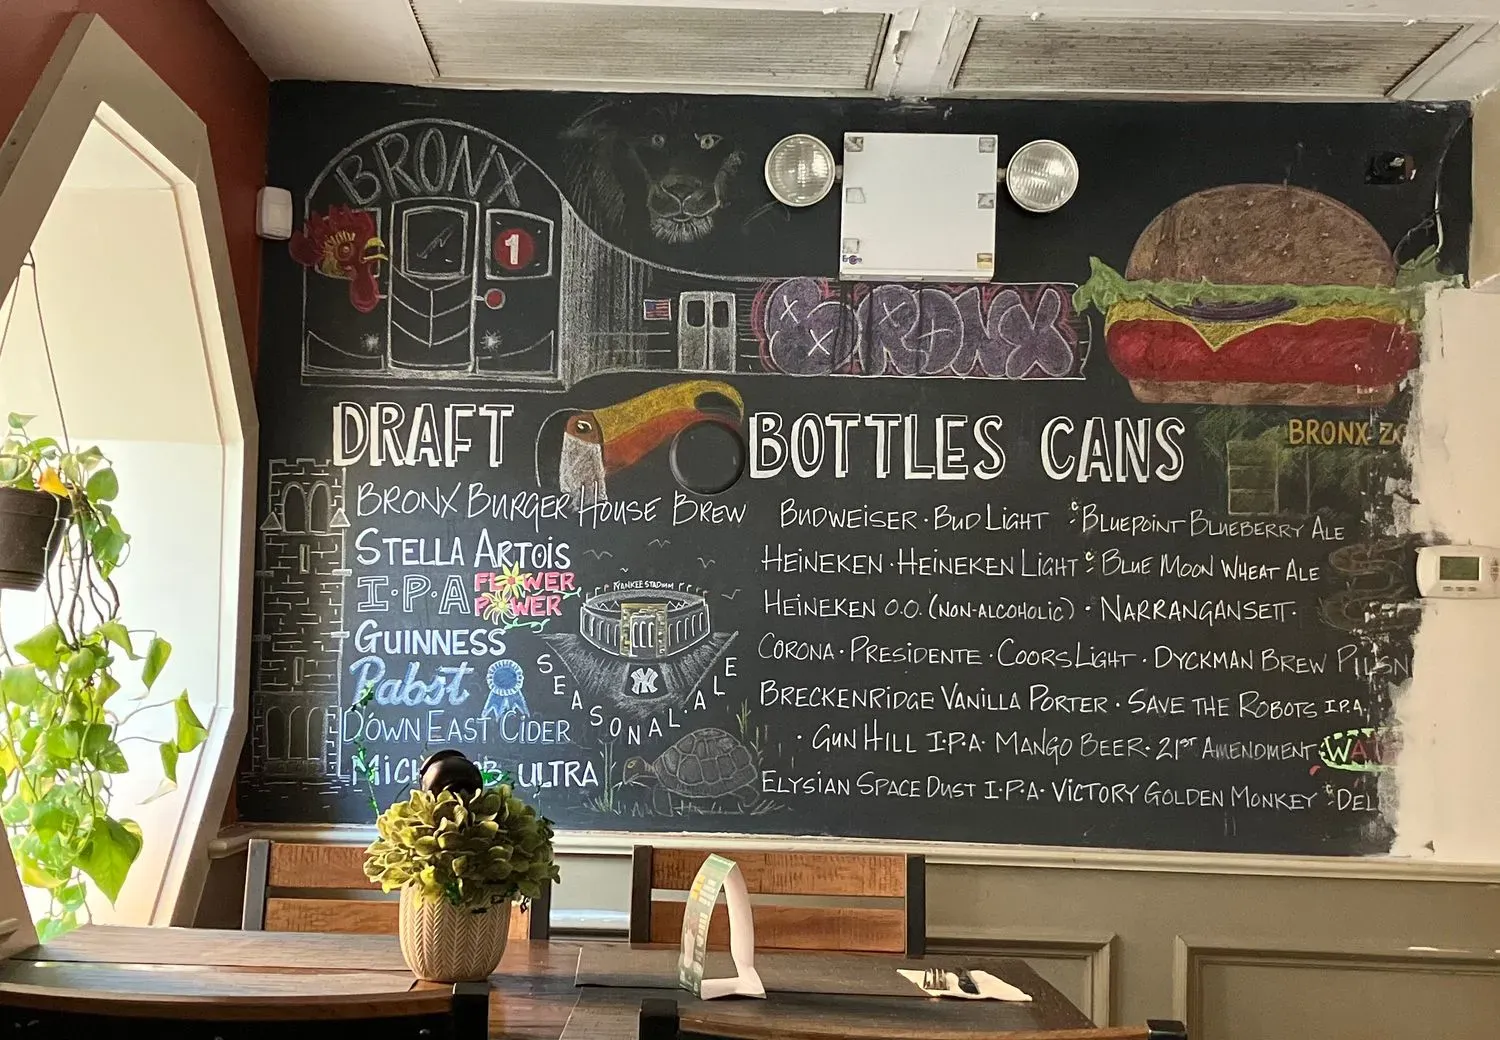 BRONX
1
BRONX
DRAFT
BOTTLES CANS
BRONX ZO
BRONX BURGER HOUSE BREW
STELLA ARTOIS
I.P.A FLOWER POWER
GUINNESS
Pabst
DOWN EAST CIDER
ULTRA
YANKEE STADIUM
NY
SEASONAL·ALE
BUDWEISER·BUD LIGHT BLUEPOINT BLUEBERRY ALE
HEINEKEN·HEINEKEN LIGHT BLUE MOON WHEAT ALE
HEINEKEN O.O. (NON-ALCOHOLIC) · NARRANGANSETT·
CORONA·PRESIDENTE·COORS LIGHT·DYCKMAN BREW PILSN
BRECKENRIDGE VANILLA PORTER·SAVE THE ROBOTS I.P.A.
·GUN HILL I.P.A· MANGO BEER·21ST AMENDMENT·WA
ELYSIAN SPACE DUST I.P.A·VICTORY GOLDEN MONKEY DEL